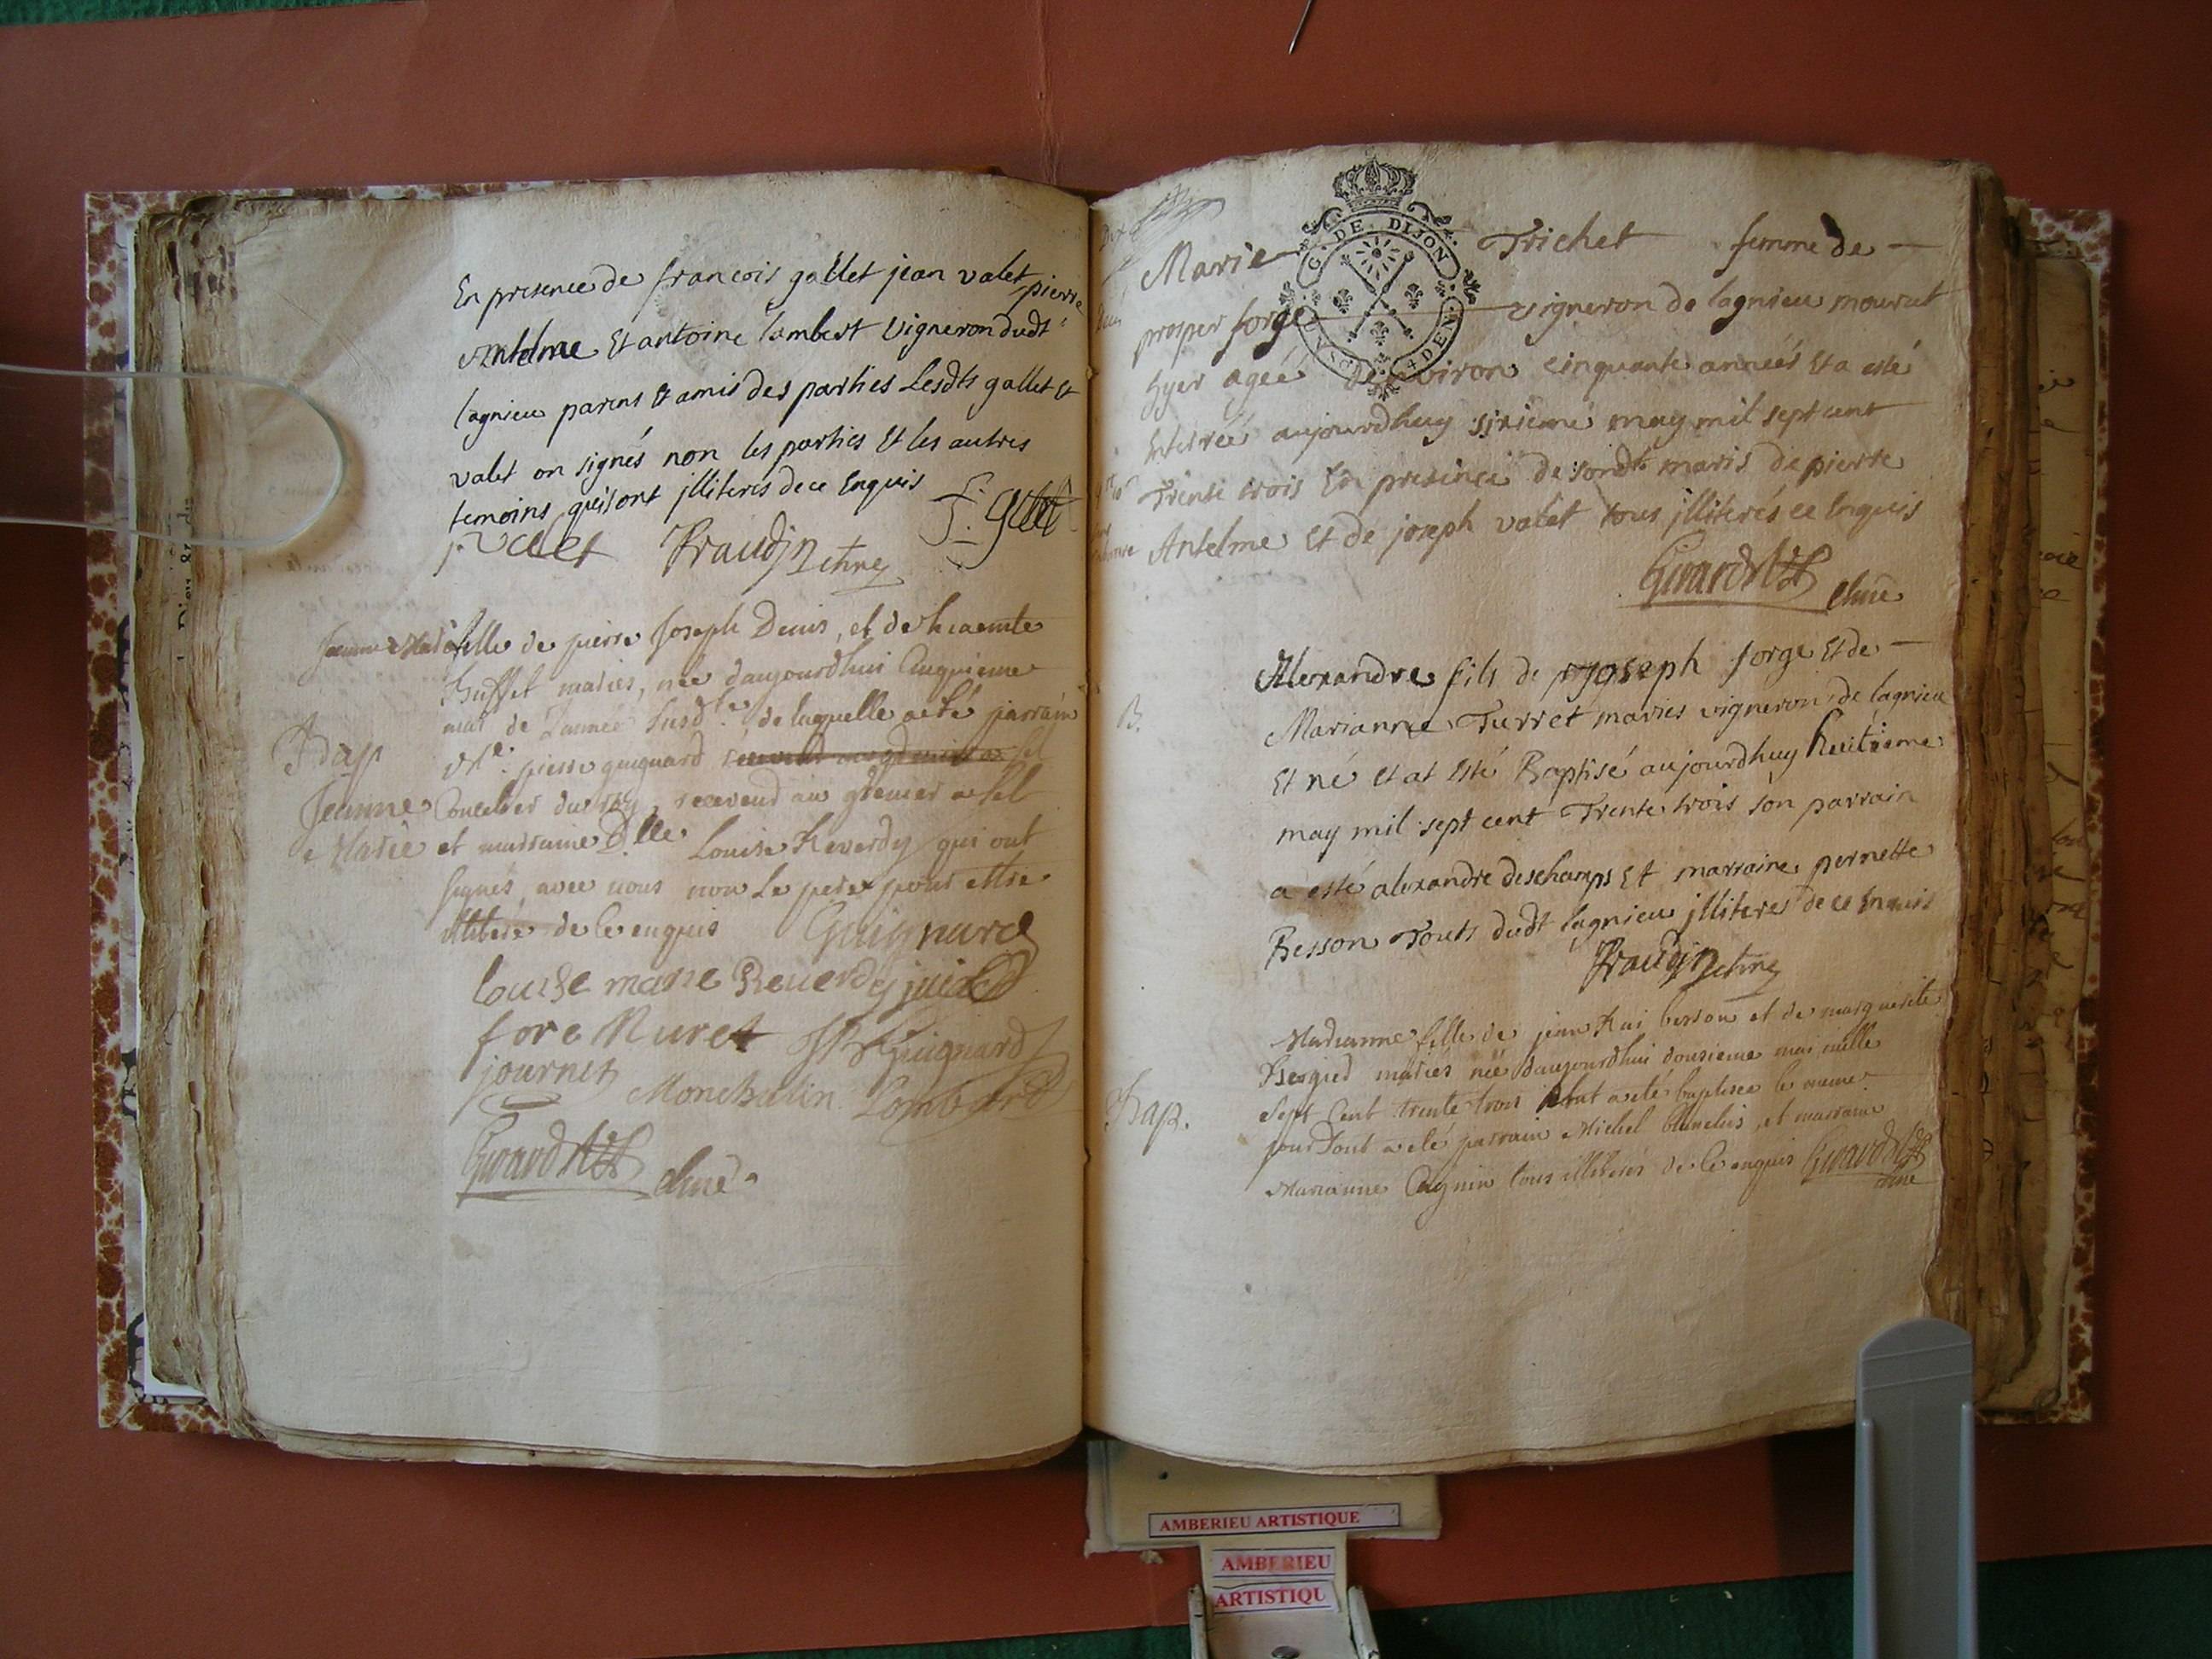 En presence de francois gallet jean valet pierre
Antelme Et antoine lambert vigneron dudt
lagnieu parens & amis des parties Lesdts gallet Et
valet on signés non les parties Et les autres
temoins quisont jlliterés de ce Enquis
f. gallet
j. valet
fille de pierre Joseph Denis, et de hiacinte
Buffet mariés, née daujourdhui Cinquieme
mai de L'année susdte. de laquelle a eté parrain
Mre. pierre guignard
Bap
Jeanne
Marie
Conselier du roy, receveur au grenier a sel
et marraine Dlle Louise Reverdy qui ont
signés avec nous non Le pere pour ettre
illiteré de ce enquis
Guignard
louise marie Reuerdy
journet
Guignard
Monchalin Lombard
Girard
Marie Trichet femme de
G. DE DIJON
prosper forge vigneron de lagnieu mourut
hyer ageé denviron cinquante anneés Et a esté
Enterreé aujourdhuy sixieme may mil sept cent
Trente trois En presence de sondt maris de pierre
Antelme Et de joseph valet tous jlliterés ce Enquis
Girard
B.
Alexandre fils de joseph forge Et de
Marianne Turret mariés vigneron de lagnieu
Et né et at Esté Baptisé aujourdhuy huitieme
may mil sept cent Trente trois son parrain
a esté alexandre deschamps Et marraine pernette
Besson Touts dudt lagnieu jlliteres de ce Enquis
Bap.
Marianne fille de jean besson et de marguerite
mariés née daujourdhui dousieme mai mille
sept Cent trente trois Etat a eté baptisée le meme
jour Dont a eté parrain Michel et marraine
Marianne tous illiterés de ce enquis Girard
AMBERIEU ARTISTIQUE
AMBERIEU
ARTISTIQU